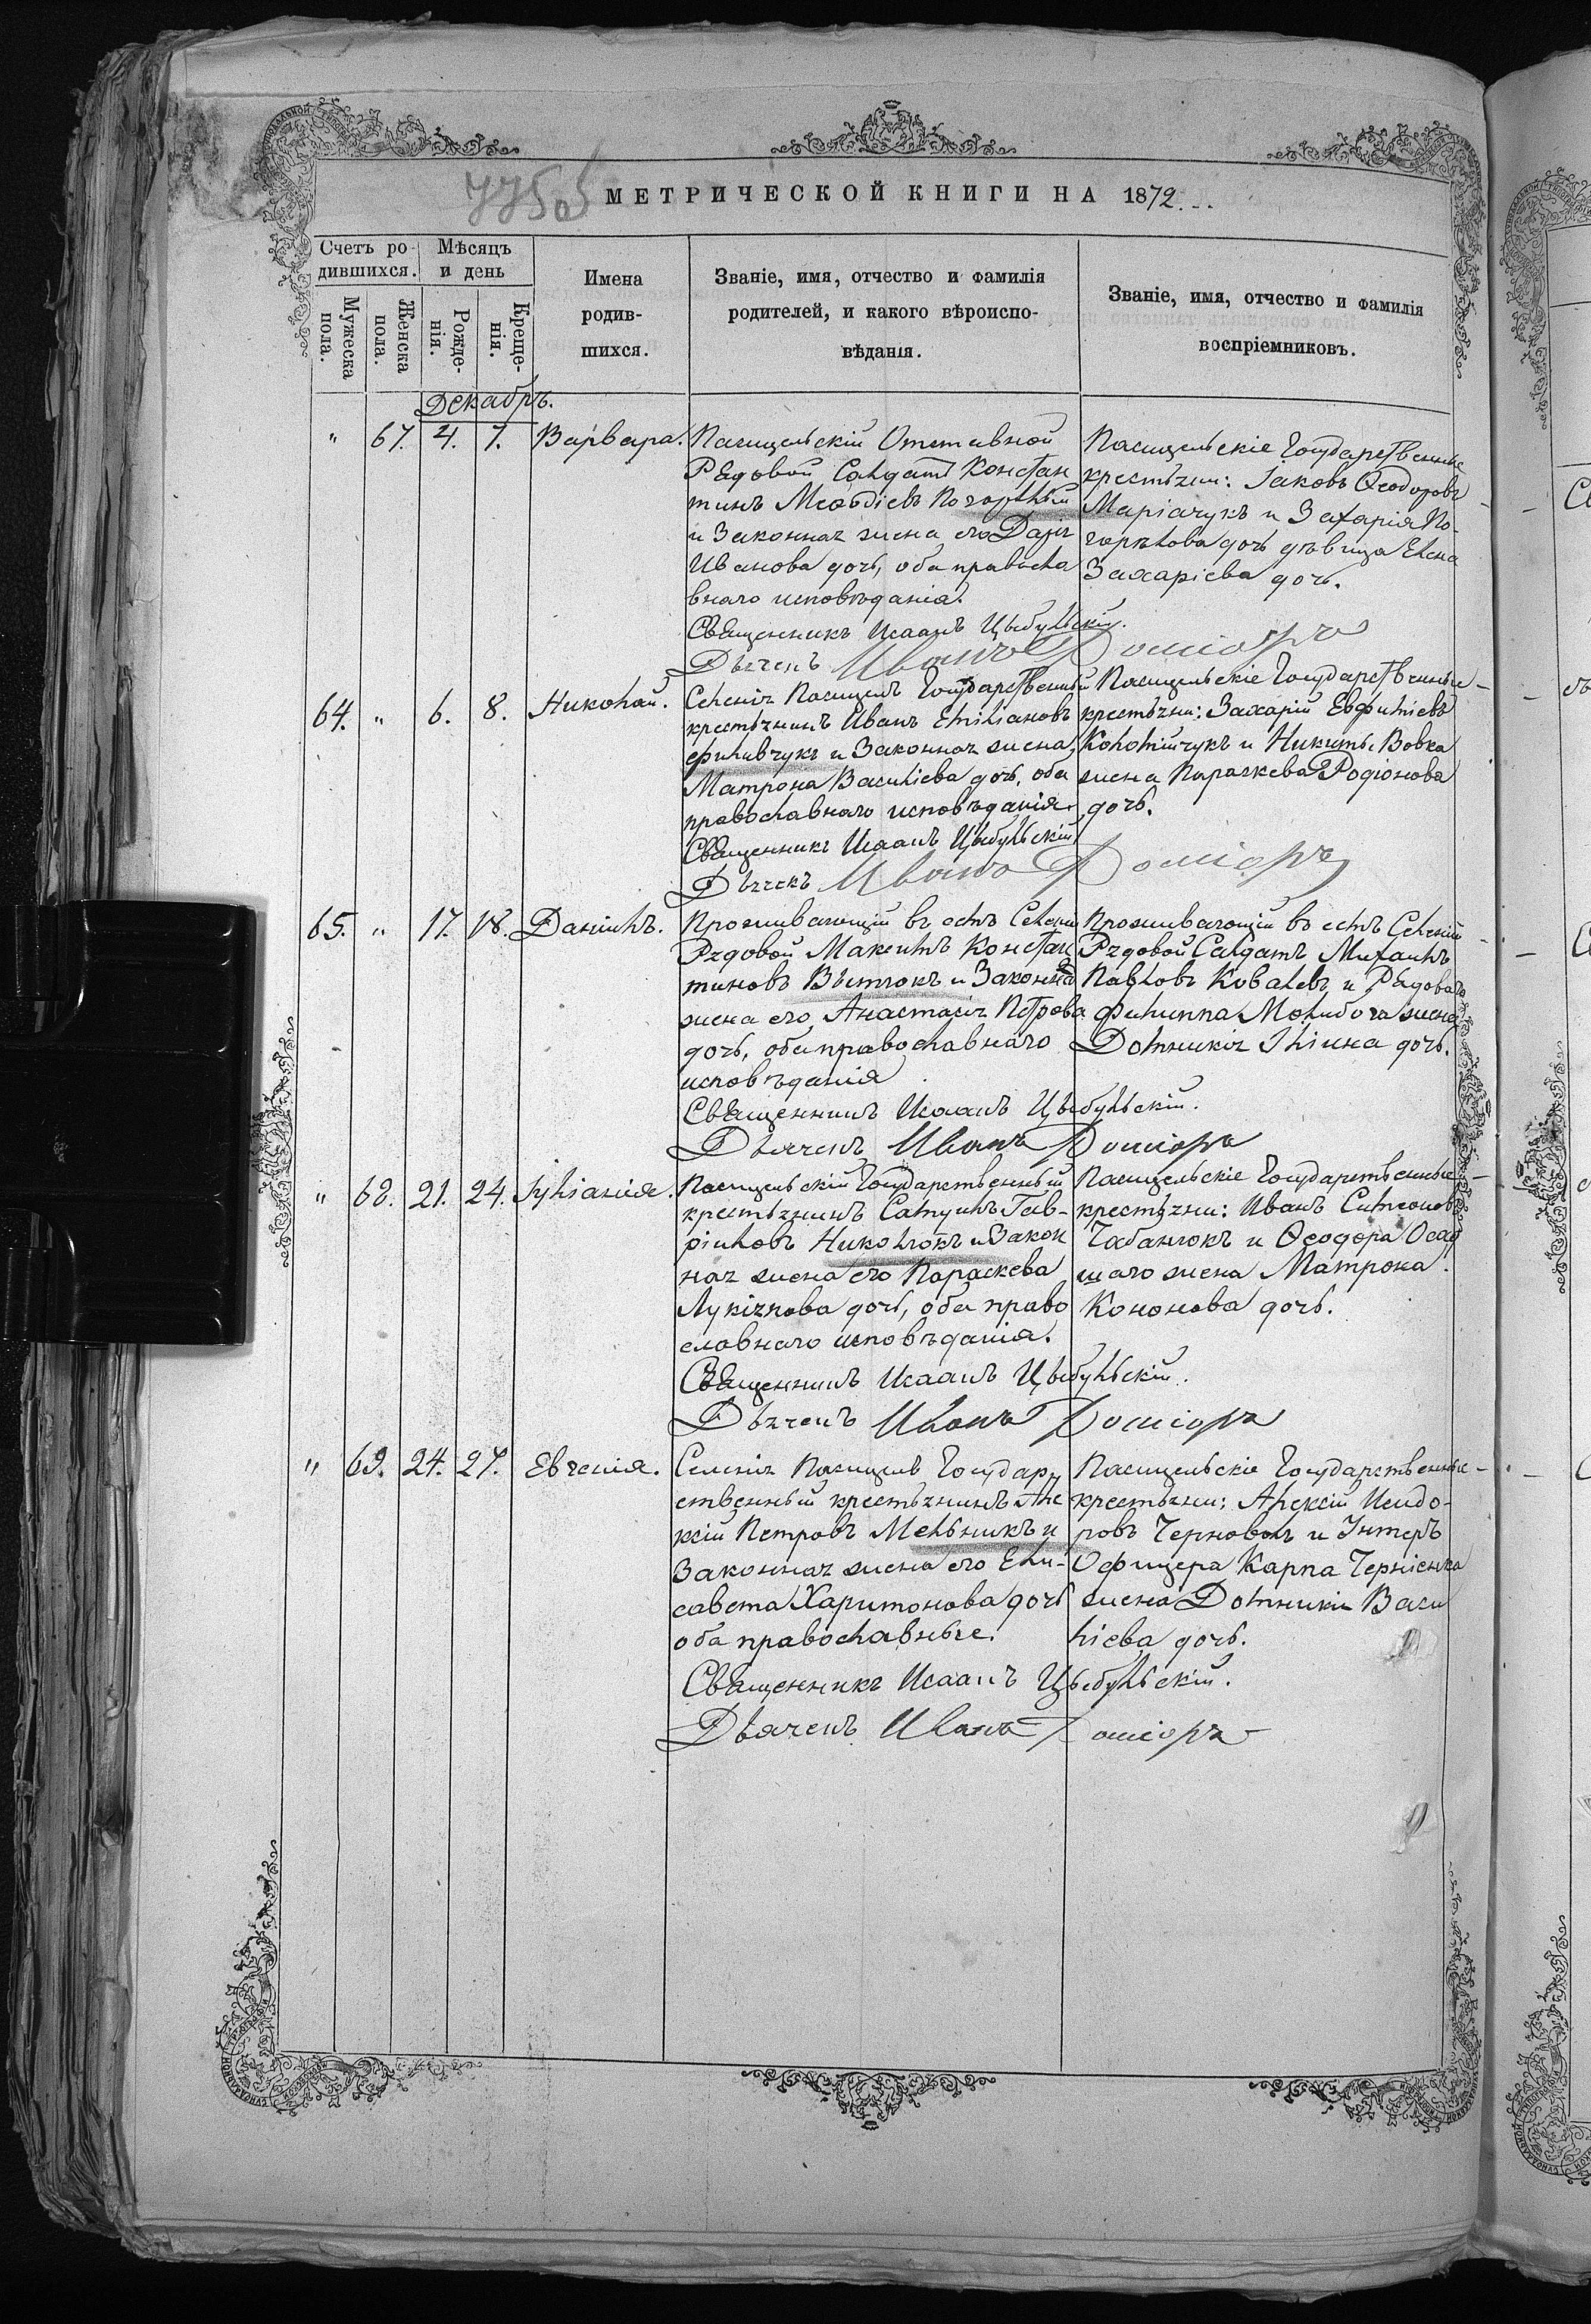 МЕТРИЧЕСКОЙ КНИГИ НА 1872
Счетъ ро-
дившихся.
Мужеска
пола.
Женска
пола.
Мѣсяцъ
и день
Рожде-
нія.
Креще-
нія.
Имена
родив-
шихся.
Званіе, имя, отчество и фамилія
родителей, и какого вѣроиспо-
вѣданія.
Званіе, имя, отчество и фамилія
воспріемниковъ.
Декабрь.
" 67. 4. 7. Варвара.
Пасицельскій Отставной
Рядовой Солдатъ Констан
тинъ Мефодіевъ Погорѣлый
и Законная жена его Дарія
Иванова дочь, оба правосла
внаго исповѣданія.
Священникъ Исаакъ Цыбульскій.
Дьячекъ Иванъ
Пасицельскіе Государственные
крестьяни: Іаковъ Ѳеодоровъ
Маріачукъ и Захарія По-
горѣлова дочь дѣвица Елена
Захаріева дочь.
64. " 6. 8. Николай.
Селенія Пасицелъ Государственный
крестьянинъ Иванъ Емиліановъ
Филивчукъ и Законная жена
Матрона Василіева дочь, оба
православнаго исповѣданія.
Священникъ Исаакъ Цыбульскій
Дьячекъ Иванъ
Пасицельскіе Государственные
крестьяни: Захарій Евфиміевъ
Коломійчукъ и Никиты Вовка
жена Параскева Родіонова
дочь.
65. " 17. 18. Даніилъ.
Проживающій въ семъ Селеніи
Рядовой Макситъ Констан
тиновъ Вѣтюкъ и Законна
жена его Анастасія Петрова
дочь, оба православнаго
исповѣданія
Священникъ Исаакъ Цыбульскій.
Дьячекъ Иванъ
Проживающій въ семъ Селеніи
Рядовой Салдатъ Михаилъ
Павловъ Ковалевъ и Рядоваго
Филиппа Молибога жена
Домникія Иліина дочь.
" 68. 21. 24. Іуліанія.
Пасицельскій Государственный
крестьянинъ Самуилъ Гав-
ріиловъ Николюкъ и Закон
ная жена его Параскева
Лукіянова дочь, оба право
славнаго исповѣданія.
Священникъ Исаакъ Цыбульскій.
Дьячекъ Иванъ
Пасицельскіе Государственные
крестьяни: Иванъ Симеоновъ
Чабанюкъ и Ѳеодора Осад
шаго жена Матрона
Кононова дочь.
" 69. 24. 27. Евгенія.
Селенія Пасицелъ Государ
ственный крестьянинъ Але
ксій Петровъ Мельникъ и
Законная жена его Ели-
савета Харитонова дочь
оба православные.
Священникъ Исаакъ Цыбульскій.
Дьячекъ Иванъ
Пасицельскіе Государственные
крестьяни: Алексій Исидо-
ровъ Черноволъ и Унтеръ
Офицера Карпа Черніенка
жена Домникія Васи
ліева дочь.